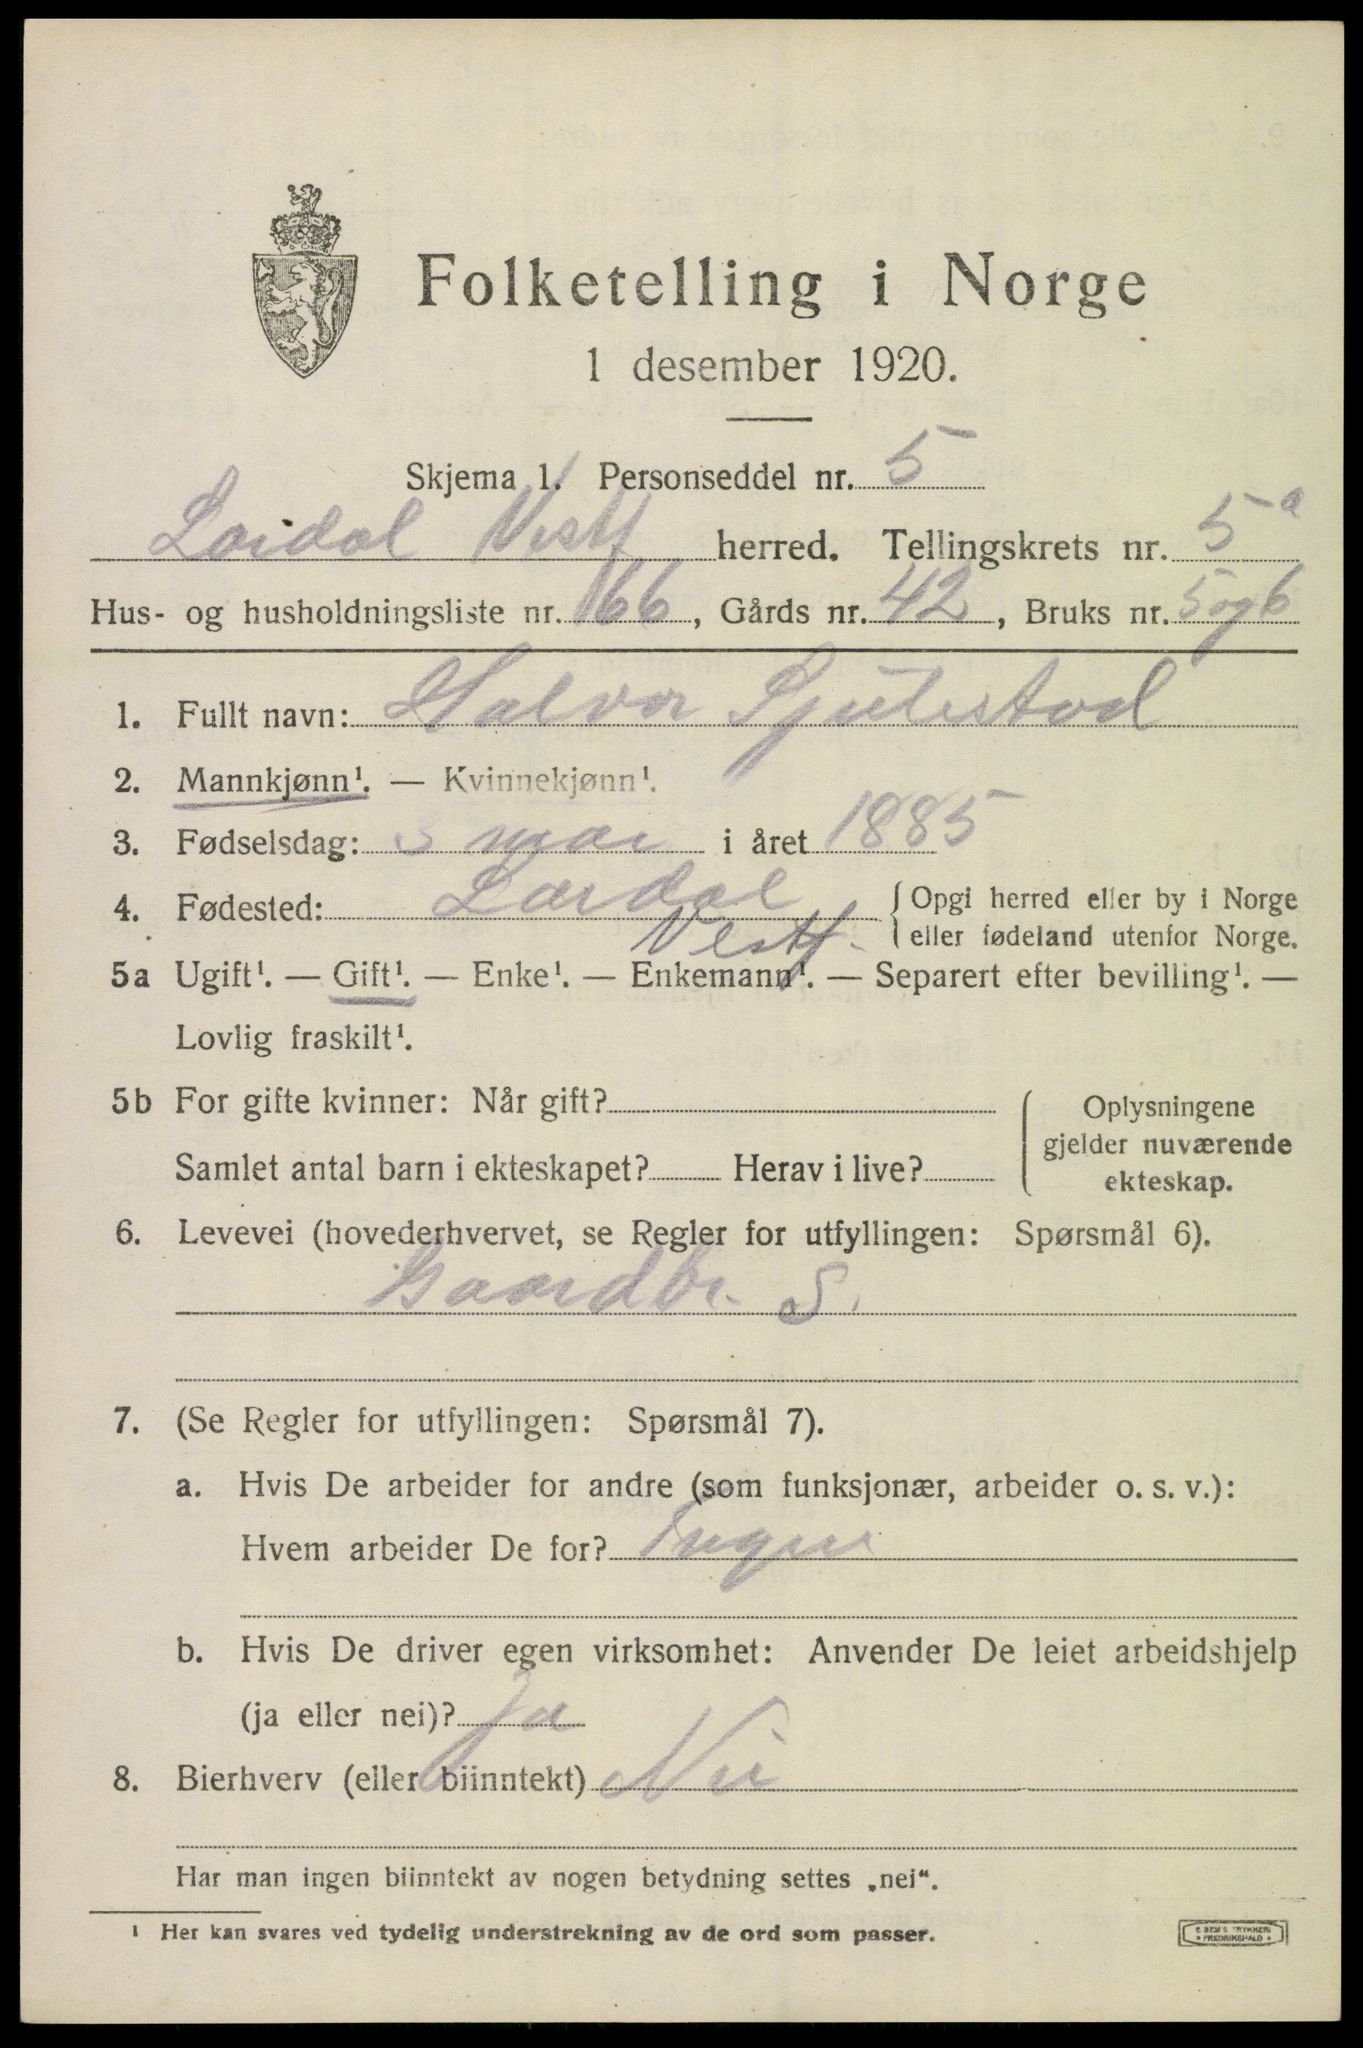 Folketelling i Norge
1 desember 1920.
Skjema 1. Personseddel nr. 5
Lardal Vestf herred. Tellingskrets nr. 5a
Hus- og husholdningsliste nr. 166, Gårds nr. 42, Bruks nr. 5 og 6
1. Fullt navn: Halvor Sjulestad
2. Mannkjønn¹. — Kvinnekjønn¹.
3. Fødselsdag: 3 mai i året 1885
4. Fødested: Lardal { Opgi herred eller by i Norge
Vestf. eller fødeland utenfor Norge.
5a Ugift¹. — Gift¹. — Enke¹. — Enkemann¹. — Separert efter bevilling¹. —
Lovlig fraskilt¹.
5b For gifte kvinner: Når gift? { Oplysningene
gjelder nuværende
Samlet antal barn i ekteskapet? Herav i live? ekteskap.
6. Levevei (hovederhvervet, se Regler for utfyllingen: Spørsmål 6).
Gaardbr. S.
7. (Se Regler for utfyllingen: Spørsmål 7).
a. Hvis De arbeider for andre (som funksjonær, arbeider o. s. v.):
Hvem arbeider De for? Ingen
b. Hvis De driver egen virksomhet: Anvender De leiet arbeidshjelp
(ja eller nei)? Ja
8. Bierhverv (eller biinntekt) Nei
Har man ingen biinntekt av nogen betydning settes „nei“.
¹ Her kan svares ved tydelig understrekning av de ord som passer.
E. SEM'S TRYKKERI
FREDRIKSHALD